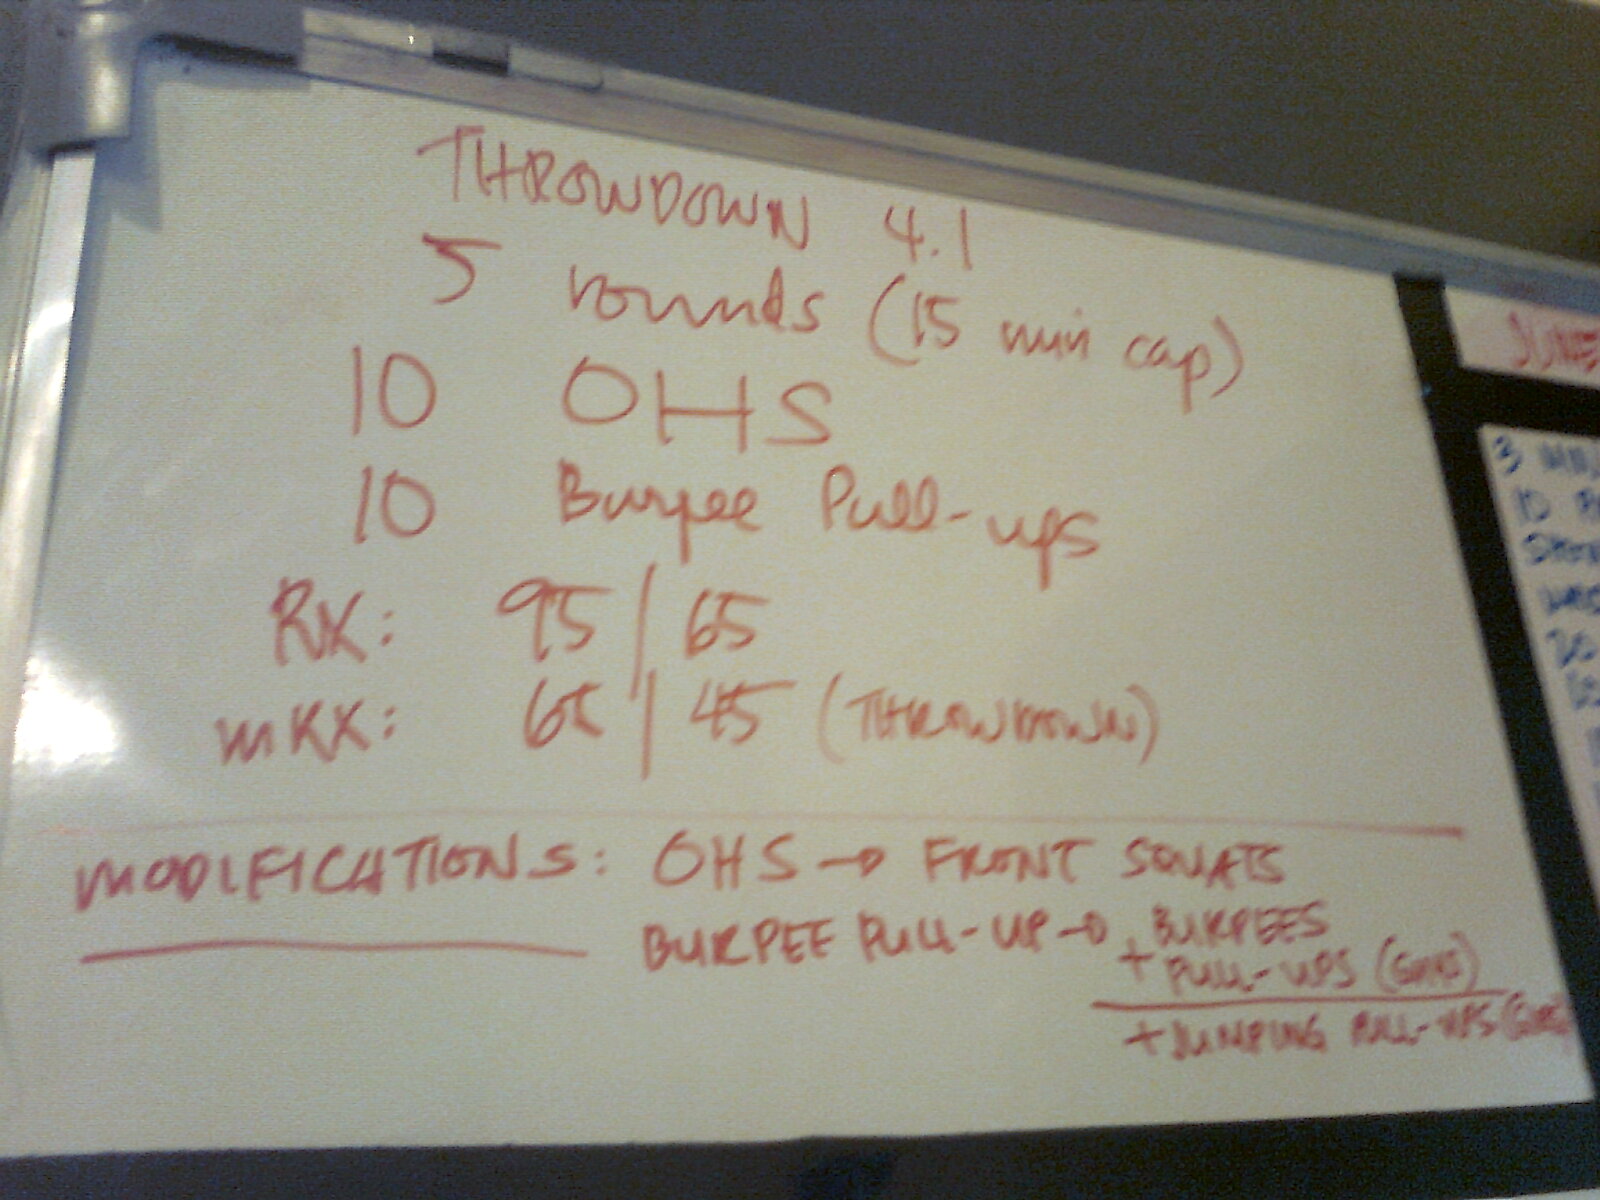 THROWDOWN 4.1
5 rounds (15 min cap)
10 OHS
10 Burpee Pull-ups
RX: 95 | 65
mRX: 65 | 45 (THROWDOWN)
MODIFICATIONS: OHS → FRONT SQUATS
BURPEE PULL-UP → BURPEES
+ PULL-UPS
+ JUMPING PULL-UPS
JUNE
3
10
20